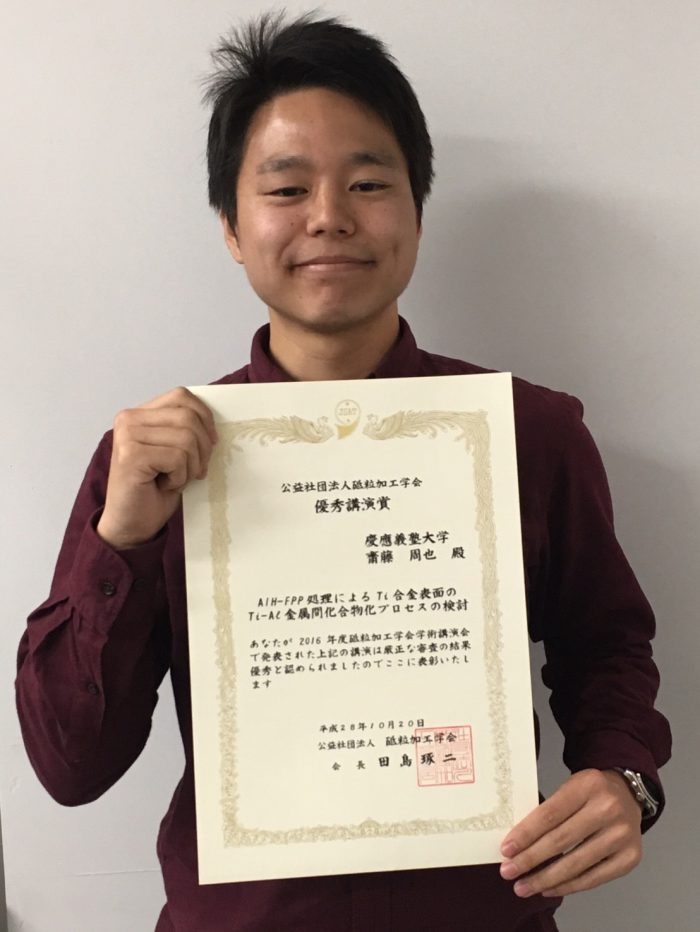 JSAT
公益社団法人砥粒加工学会
優秀講演賞
慶應義塾大学
齋藤 周也 殿
AIH-FPP処理によるTi合金表面の
Ti-Al金属間化合物化プロセスの検討
あなたが2016年度砥粒加工学会学術講演会
で発表された上記の講演は厳正な審査の結果
優秀と認められましたのでここに表彰いたし
ます
平成28年10月20日
公益社団法人 砥粒加工学会
会長 田島琢二